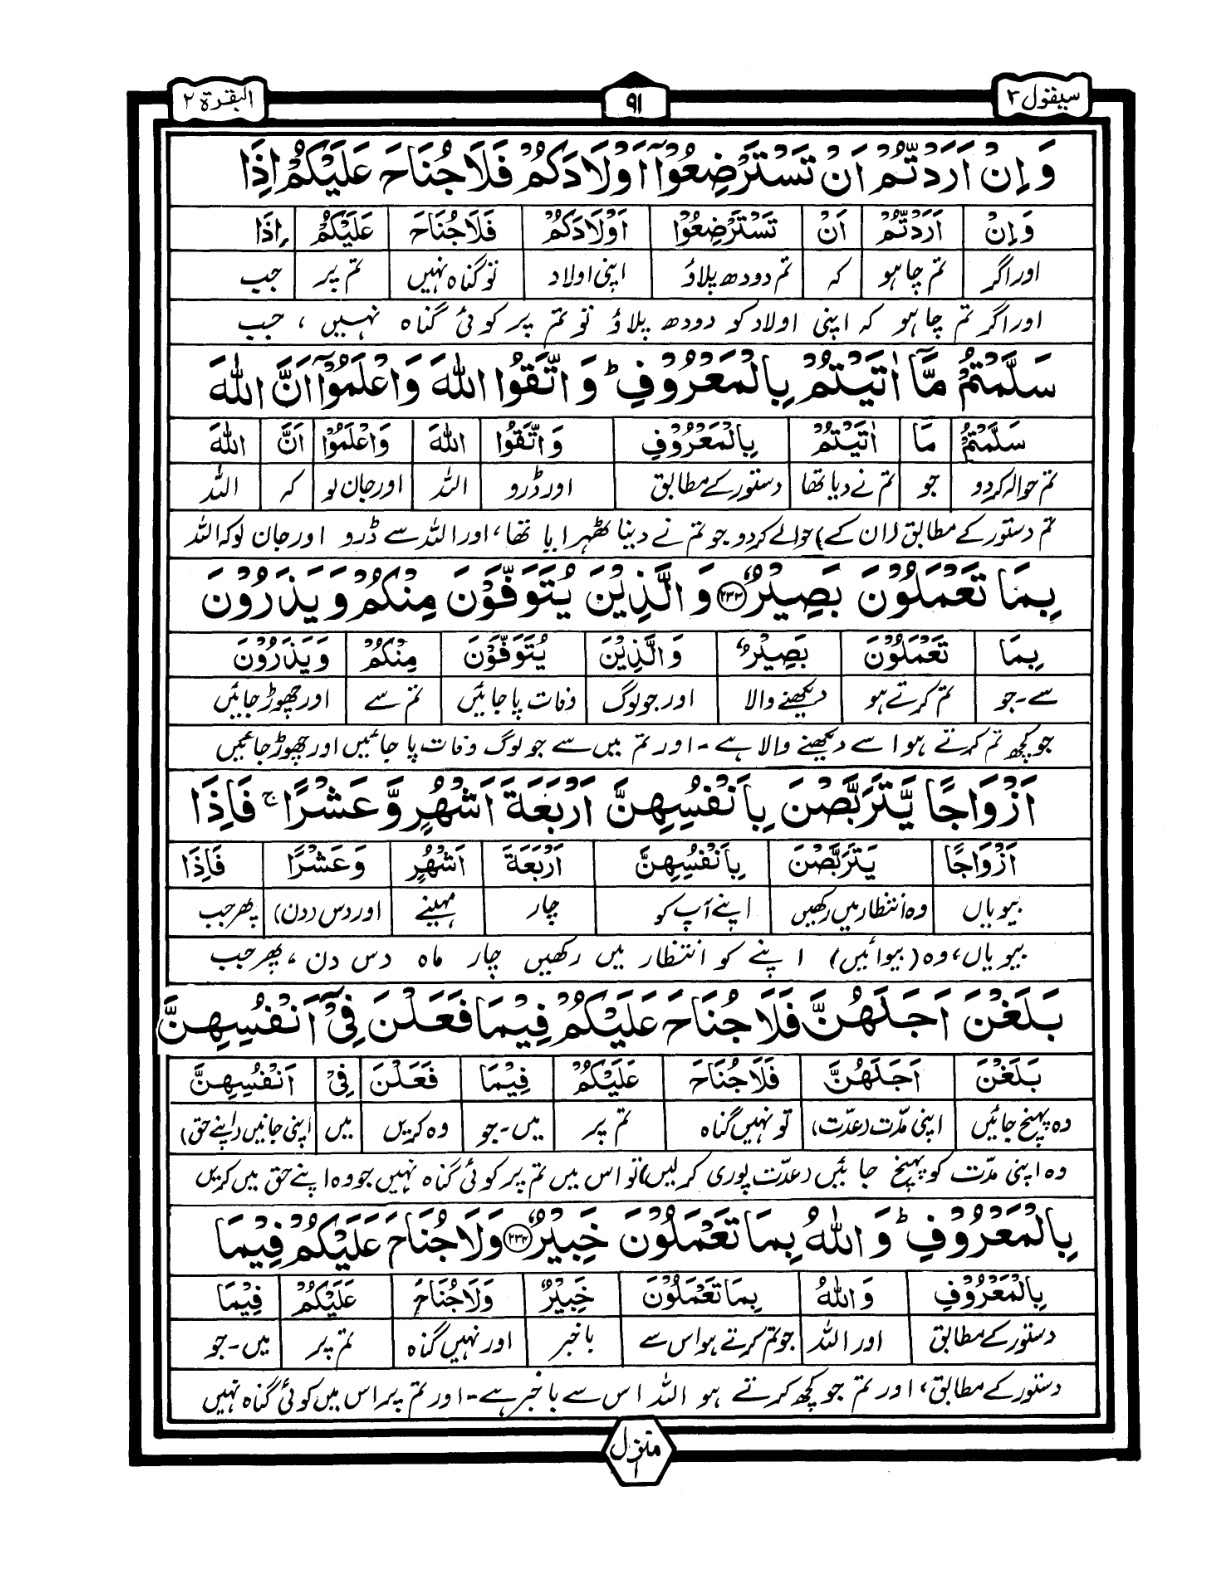 سیقول ۲
۹۱
البقرة ۲
وَاِنْ اَرَدْتُّمْ اَنْ تَسْتَرْضِعُوْٓا اَوْلَادَكُمْ فَلَا جُنَاحَ عَلَيْكُمْ اِذَا
وَاِنْ اَرَدْتُّمْ اَنْ تَسْتَرْضِعُوْٓا اَوْلَادَكُمْ فَلَا جُنَاحَ عَلَيْكُمْ اِذَا
اور اگر تم چاہو کہ تم دودھ پلاؤ اپنی اولاد تو گناہ نہیں تم پر جب
اور اگر تم چاہو کہ اپنی اولاد کو دودھ پلاؤ تو تم پر کوئی گناہ نہیں ، جب
سَلَّمْتُمْ مَّآ اٰتَيْتُمْ بِالْمَعْرُوْفِ ؕ وَاتَّقُوا اللّٰهَ وَاعْلَمُوْٓا اَنَّ اللّٰهَ
سَلَّمْتُمْ مَّا اٰتَيْتُمْ بِالْمَعْرُوْفِ وَاتَّقُوا اللّٰهَ وَاعْلَمُوْٓا اَنَّ اللّٰهَ
تم حوالہ کر دو جو تم نے دیا تھا دستور کے مطابق اور ڈرو اللہ اور جان لو کہ اللہ
تم دستور کے مطابق (ان کے) حوالے کر دو جو تم نے دینا ٹھہرایا تھا، اور اللہ سے ڈرو اور جان لو کہ اللہ
بِمَا تَعْمَلُوْنَ بَصِيْرٌ ﴿۲۳۳﴾ وَالَّذِيْنَ يُتَوَفَّوْنَ مِنْكُمْ وَيَذَرُوْنَ
بِمَا تَعْمَلُوْنَ بَصِيْرٌ وَالَّذِيْنَ يُتَوَفَّوْنَ مِنْكُمْ وَيَذَرُوْنَ
سے۔جو تم کرتے ہو دیکھنے والا اور جو لوگ وفات پا جائیں تم سے اور چھوڑ جائیں
جو کچھ تم کرتے ہو اسے دیکھنے والا ہے ۔ اور تم میں سے جو لوگ وفات پا جائیں اور چھوڑ جائیں
اَزْوَاجًا يَّتَرَبَّصْنَ بِاَنْفُسِهِنَّ اَرْبَعَةَ اَشْهُرٍ وَّعَشْرًا ۚ فَاِذَا
اَزْوَاجًا يَتَرَبَّصْنَ بِاَنْفُسِهِنَّ اَرْبَعَةَ اَشْهُرٍ وَعَشْرًا فَاِذَا
بیویاں وہ انتظار میں رکھیں اپنے آپ کو چار مہینے اور دس (دن) پھر جب
بیویاں، وہ (بیوائیں) اپنے کو انتظار میں رکھیں چار ماہ دس دن ، پھر جب
بَلَغْنَ اَجَلَهُنَّ فَلَا جُنَاحَ عَلَيْكُمْ فِيْمَا فَعَلْنَ فِيْٓ اَنْفُسِهِنَّ
بَلَغْنَ اَجَلَهُنَّ فَلَا جُنَاحَ عَلَيْكُمْ فِيْمَا فَعَلْنَ فِيْ اَنْفُسِهِنَّ
وہ پہنچ جائیں اپنی مدّت (عدّت) تو نہیں گناہ تم پر میں۔جو وہ کریں میں اپنی جانیں (اپنے حق)
وہ اپنی مدّت کو پہنچ جائیں (عدّت پوری کر لیں) تو اس میں تم پر کوئی گناہ نہیں جو وہ اپنے حق میں کریں
بِالْمَعْرُوْفِ ؕ وَاللّٰهُ بِمَا تَعْمَلُوْنَ خَبِيْرٌ ﴿۲۳۴﴾ وَلَا جُنَاحَ عَلَيْكُمْ فِيْمَا
بِالْمَعْرُوْفِ وَاللّٰهُ بِمَا تَعْمَلُوْنَ خَبِيْرٌ وَلَا جُنَاحَ عَلَيْكُمْ فِيْمَا
دستور کے مطابق اور اللہ جو تم کرتے ہو اس سے باخبر اور نہیں گناہ تم پر میں۔جو
دستور کے مطابق، اور تم جو کچھ کرتے ہو اللہ اس سے باخبر ہے ۔ اور تم پر اس میں کوئی گناہ نہیں
منزل ۱